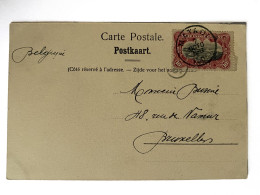 Carte Postale.
Postkaart.
(Côté réservé à l'adresse. — Zijde voor het
Belgique
Monsieur
48, rue de Namur
Bruxelles